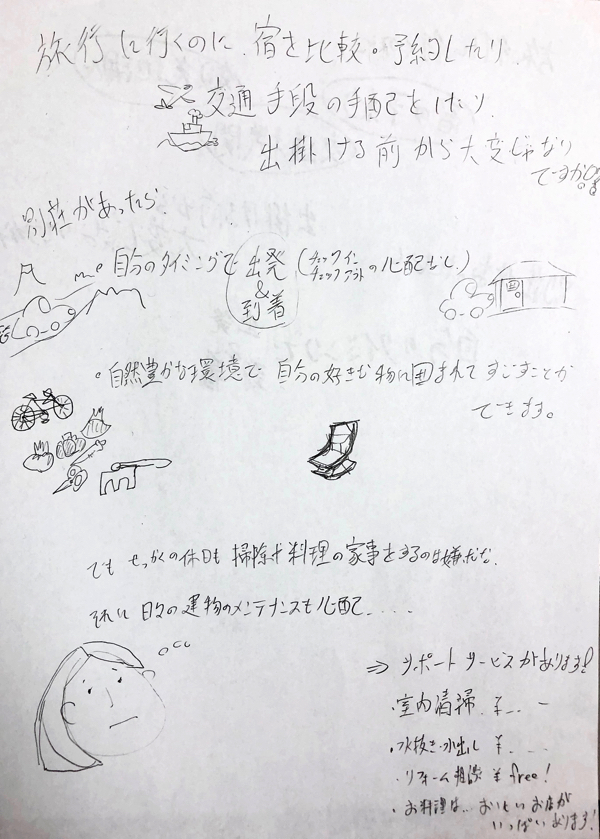 旅行に行くのに、宿を比較・予約したり、
交通手段の手配をしたり、
出掛ける前から大変じゃなり
ですか?
別荘があったら、
自分のタイミングで出発&到着(チェックインチェックアウトの心配なし)
自然豊かな環境で自分の好きな物に囲まれてすごすことが
できます。
でもせっかくの休日も掃除や料理の家事をするのは嫌だな、
それに日々の建物のメンテナンスも心配....
⇒ サポートサービスがあります!
・室内清掃 ¥..-
・水抜き・水出し ¥...
・リフォーム相談 ¥ free!
・お料理は…おいしいお店が
いっぱいあります!